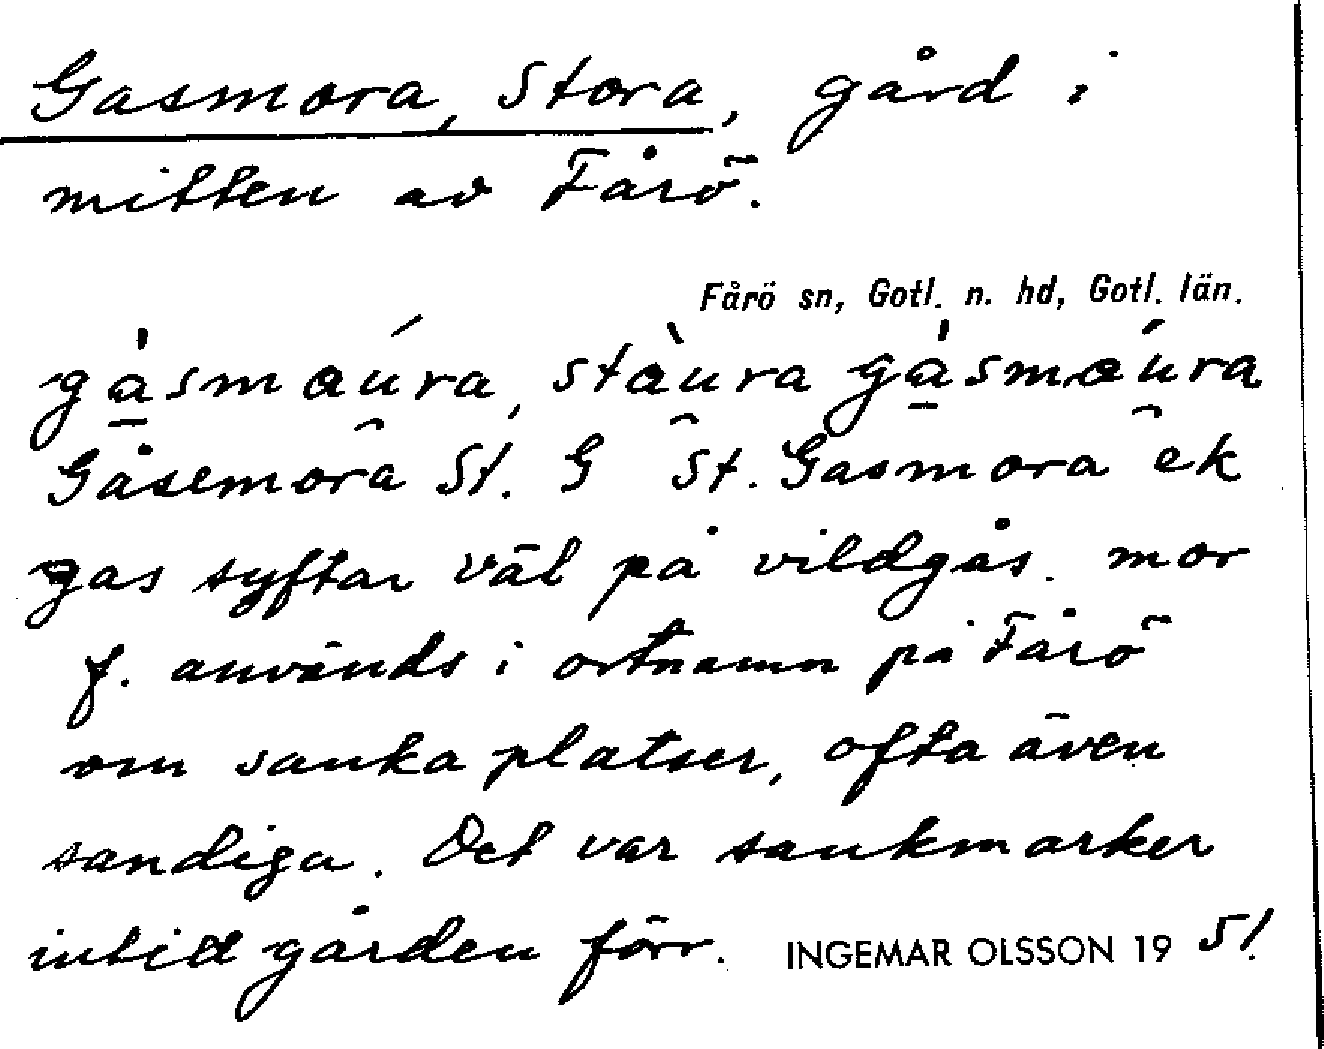 Gasmora, Stora, gård i
mitten av Fårö.
Fårö sn, Gotl. n. hd, Gotl. län.
gà̱smaúra, stàura gà̱smaúra
Gåsemora St. G St. Gasmora ek
gas syftar väl på vildgås. mor
f. används i ortnamn på Fårö
om sanka platser, ofta även
sandiga. Det var sankmarker
intill gården förr. INGEMAR OLSSON 19 51.